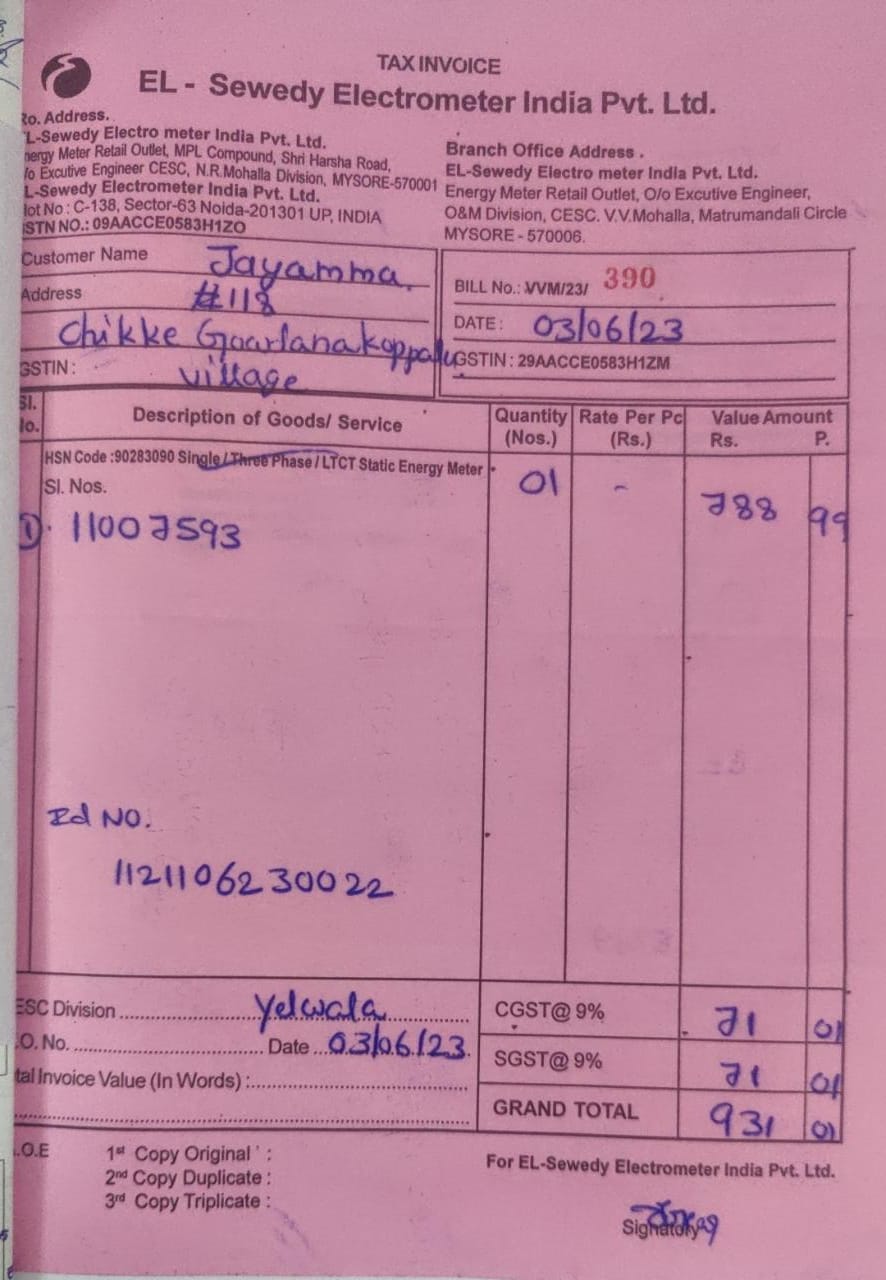 TAX INVOICE
EL - Sewedy Electrometer India Pvt. Ltd.
Ro. Address.
L-Sewedy Electro meter India Pvt. Ltd.
nergy Meter Retail Outlet, MPL Compound, Shri Harsha Road,
/o Excutive Engineer CESC, N.R.Mohalla Division, MYSORE-570001
L-Sewedy Electrometer India Pvt. Ltd.
lot No : C-138, Sector-63 Noida-201301 UP, INDIA
STN NO.: 09AACCE0583H1ZO
Branch Office Address .
EL-Sewedy Electro meter India Pvt. Ltd.
Energy Meter Retail Outlet, O/o Excutive Engineer,
O&M Division, CESC. V.V.Mohalla, Matrumandali Circle
MYSORE - 570006.
Customer Name Jayamma.
Address #118
Chikke Gowdanakoppalu
GSTIN : village
BILL No.: VVM/23/ 390
DATE : 03/06/23
GSTIN : 29AACCE0583H1ZM
Sl. No. Description of Goods/ Service Quantity (Nos.) Rate Per Pc (Rs.) Value Amount Rs. P.
HSN Code :90283090 Single / Three Phase / LTCT Static Energy Meter 01 - 788 99
Sl. Nos.
1). 11007593
Id No.
1121106230022
ESC Division Yelwala CGST@ 9% 71 01
.O. No. Date 03/06/23. SGST@ 9% 71 01
tal Invoice Value (In Words) : GRAND TOTAL 931 01
.O.E
1st Copy Original :
2nd Copy Duplicate :
3rd Copy Triplicate :
For EL-Sewedy Electrometer India Pvt. Ltd.
Signatory